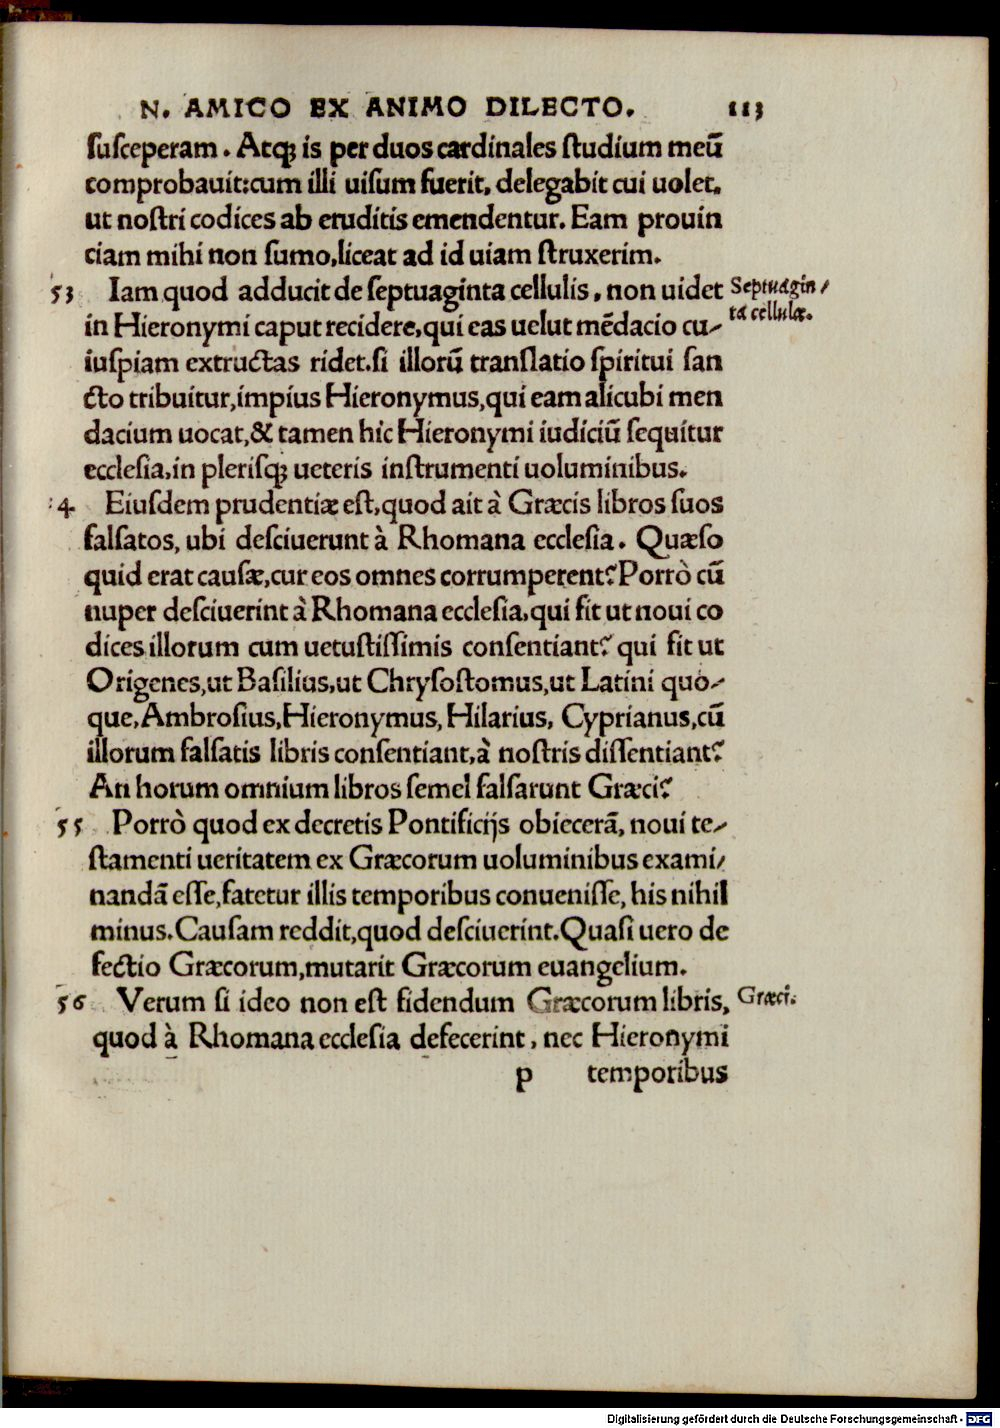 N. AMICO EX ANIMO DILECTO. 113
susceperam. Atq; is per duos cardinales studium meū
comprobauit: cum illi uisum fuerit, delegabit cui uolet,
ut nostri codices ab eruditis emendentur. Eam prouin
ciam mihi non sumo, liceat ad id uiam struxerim.
53 Iam quod adducit de septuaginta cellulis, non uidet
Septuagin/
ta cellulæ.
in Hieronymi caput recidere, qui eas uelut mēdacio cu/
iuspiam extructas ridet. si illorū translatio spiritui san
cto tribuitur, impius Hieronymus, qui eam alicubi men
dacium uocat, & tamen hic Hieronymi iudiciū sequitur
ecclesia, in plerisq; ueteris instrumenti uoluminibus.
:4 Eiusdem prudentiæ est, quod ait à Græcis libros suos
falsatos, ubi desciuerunt à Rhomana ecclesia. Quæso
quid erat causæ, cur eos omnes corrumperent? Porrò cū
nuper desciuerint à Rhomana ecclesia, qui fit ut noui co
dices illorum cum uetustissimis consentiant? qui fit ut
Origenes, ut Basilius, ut Chrysostomus, ut Latini quo/
que, Ambrosius, Hieronymus, Hilarius, Cyprianus, cū
illorum falsatis libris consentiant, à nostris dissentiant?
An horum omnium libros semel falsarunt Græci?
55 Porrò quod ex decretis Pontificijs obiecerā, noui te/
stamenti ueritatem ex Græcorum uoluminibus exami/
nandā esse, fatetur illis temporibus conuenisse, his nihil
minus. Causam reddit, quod desciuerint. Quasi uero de
fectio Græcorum, mutarit Græcorum euangelium.
56 Verum si ideo non est fidendum Græcorum libris,
Græci.
quod à Rhomana ecclesia defecerint, nec Hieronymi
p temporibus
Digitalisierung gefördert durch die Deutsche Forschungsgemeinschaft - DFG